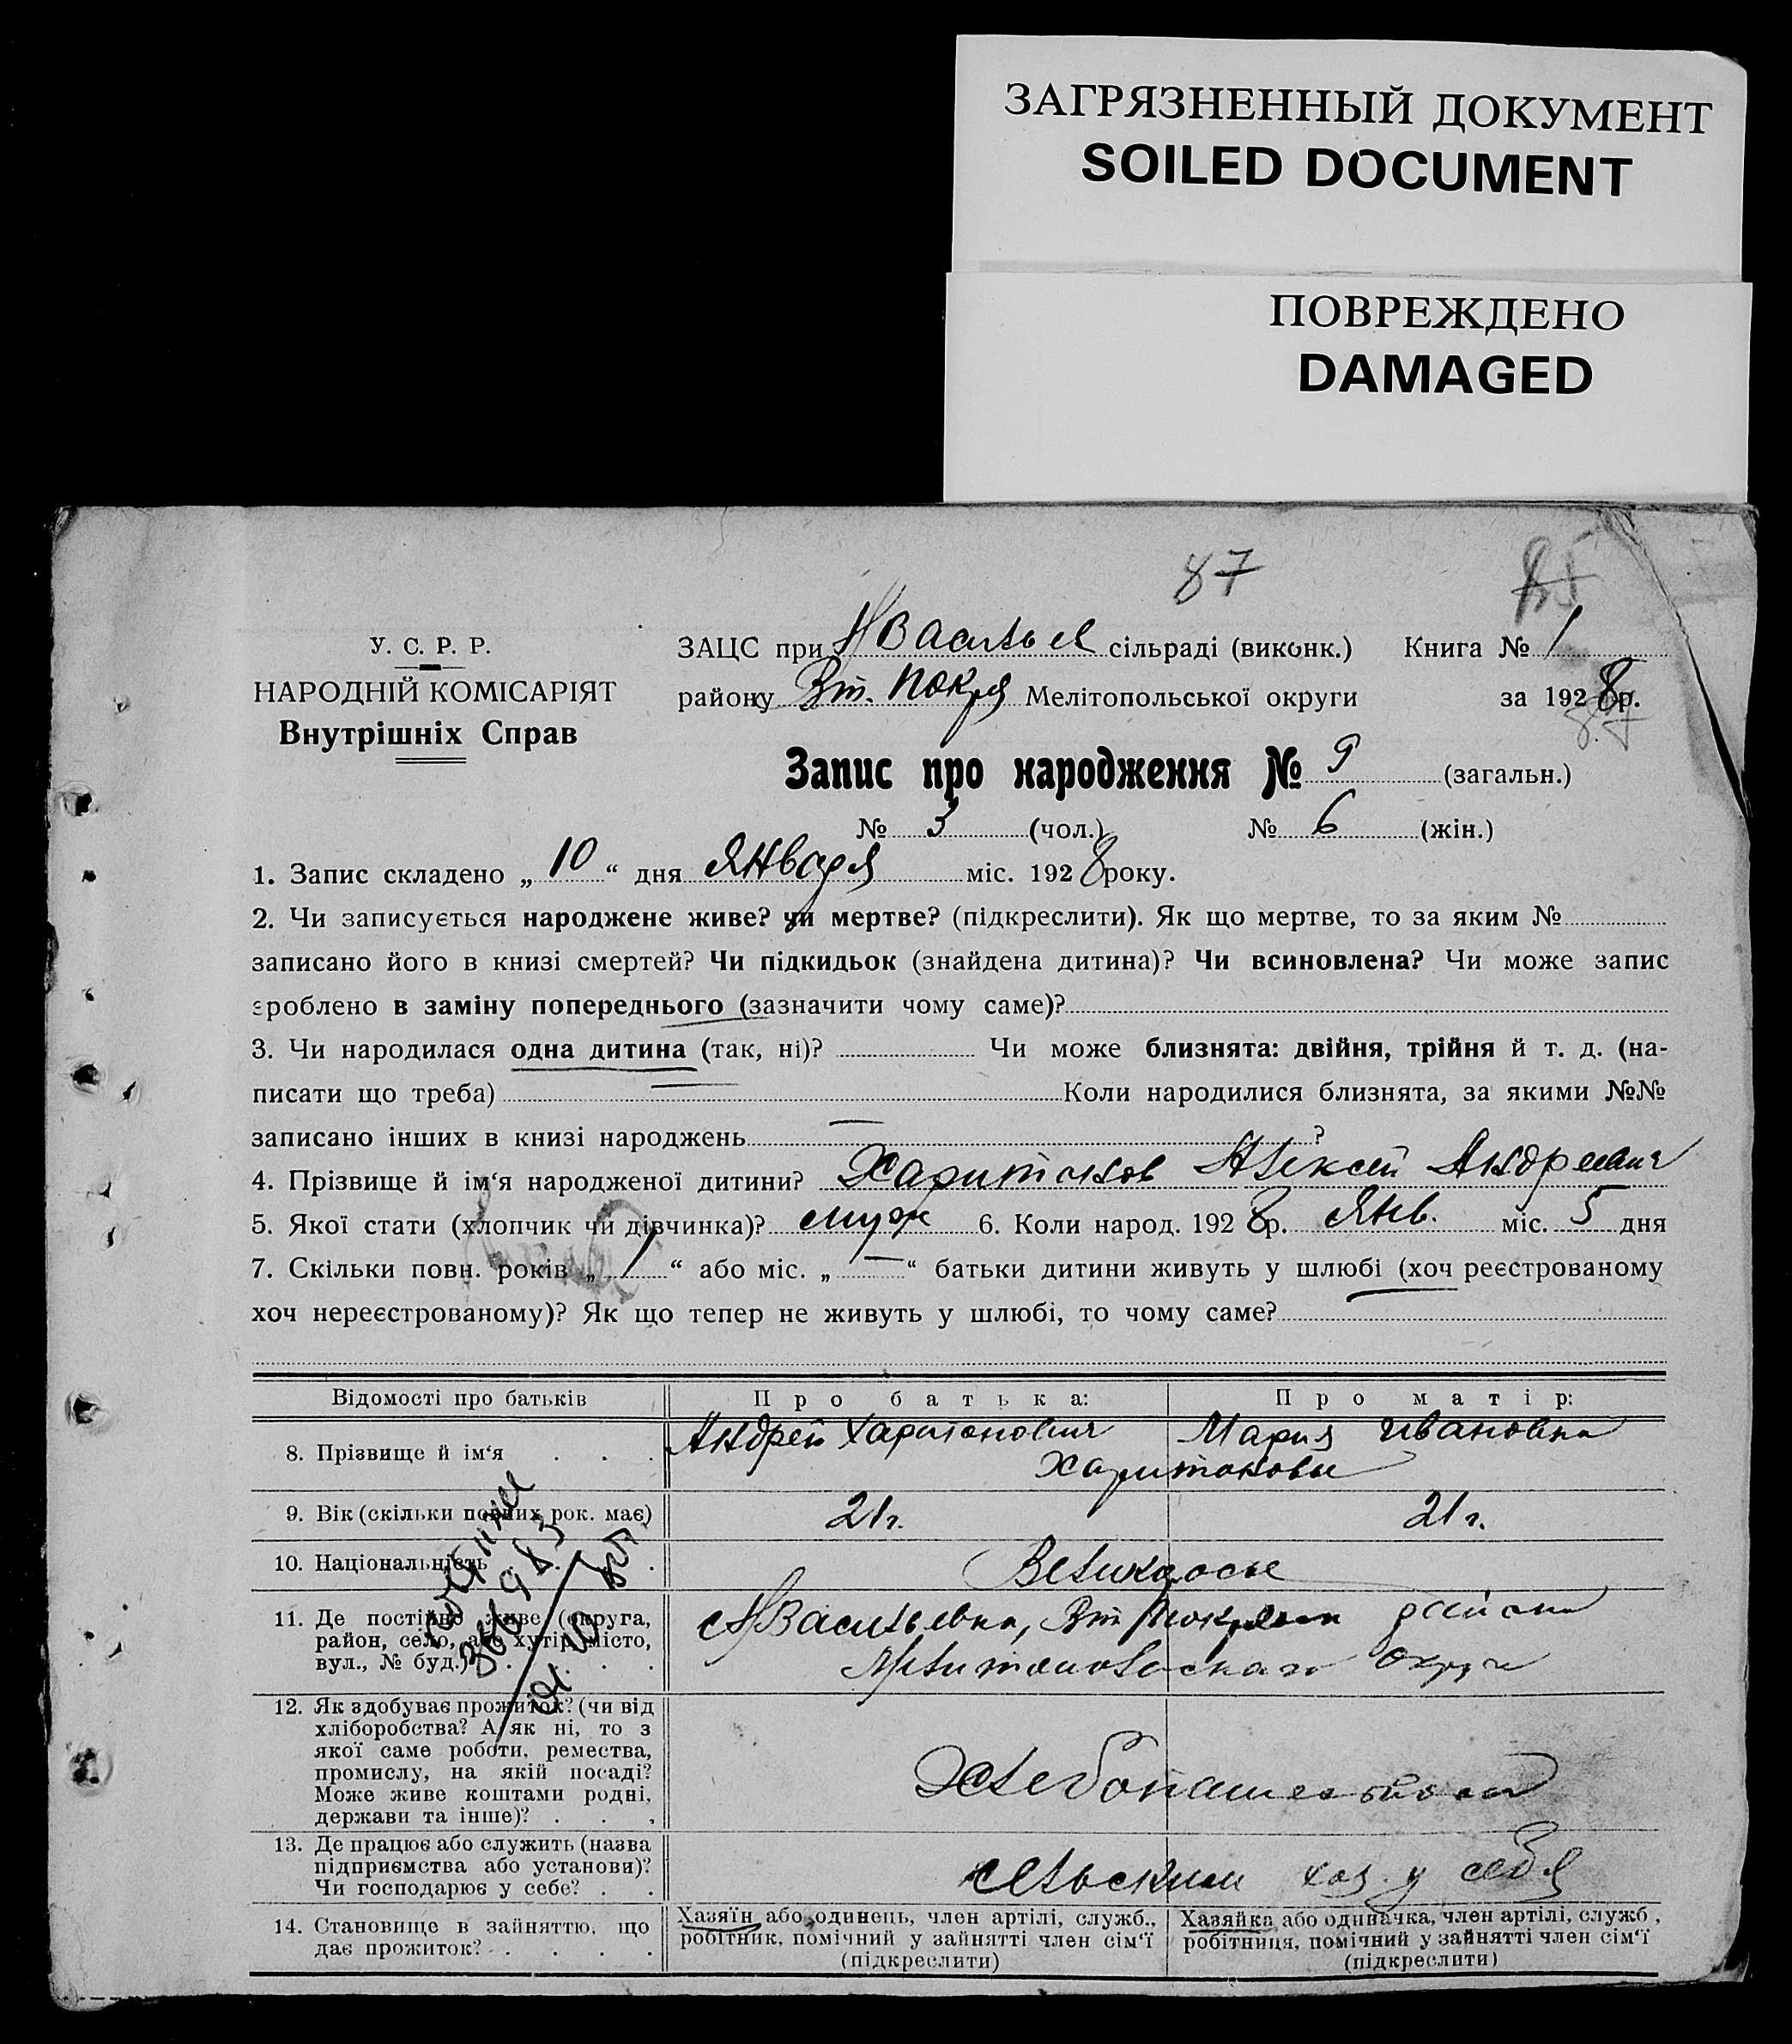 ЗАГРЯЗНЕННЫЙ ДОКУМЕНТ
SOILED DOCUMENT
ПОВРЕЖДЕНО
DAMAGED
87
У. С. Р. Р.
НАРОДНІЙ КОМІСАРІЯТ
Внутрішніх Справ
ЗАЦС при НВасилье сільраді (виконк.) Книга № 1
району Вт. Покря Мелітопольської округи за 1928 р.
87
Запис про народження № 9 (загальн.)
№ 3 (чол.) № 6 (жін.)
1. Запис складено „ 10 “ дня Января міс. 1928 року.
2. Чи записується народжене живе? чи мертве? (підкреслити). Як що мертве, то за яким №
записано його в книзі смертей? Чи підкидьок (знайдена дитина)? Чи всиновлена? Чи може запис
зроблено в заміну попереднього (зазначити чому саме)?
3. Чи народилася одна дитина (так, ні)? Чи може близнята: двійня, трійня й т. д. (на-
писати що треба) Коли народилися близнята, за якими №№
записано інших в книзі народжень ?
4. Прізвище й ім‘я народженої дитини? Харитонов Алексей Андреевич
5. Якої стати (хлопчик чи дівчинка)? муж 6. Коли народ. 1928 р. Янв. міс. 5 дня
7. Скільки повн. років „ 1 “ або міс. „ — “ батьки дитини живуть у шлюбі (хоч реєстрованому
хоч нереєстрованому)? Як що тепер не живуть у шлюбі, то чому саме?
Відомості про батьків Про батька: Про матір:
8. Прізвище й ім‘я Андрей Харитонович Мария Ивановна
Харитоновы
9. Вік (скільки повних рок. має) 21 г. 21 г.
10. Національність Великоросы
11. Де постійно живе (округа,
район, село, або хутір, місто,
вул., № буд.)
НВасильевка, Вт Покров района
Мелитопольского округа
12. Як здобуває прожиток? (чи від
хліборобства? А як ні, то з
якої саме роботи, ремества,
промислу, на якій посаді?
Може живе коштами родні,
держави та інше)?
Хлебопашеством
13. Де працює або служить (назва
підприємства або установи)?
Чи господарює у себе?
сельским хоз. у себя
14. Становище в зайняттю, що
дає прожиток?
Хазяїн або одинець, член артілі, служб.,
робітник, помічний у зайнятті член сім‘ї
(підкреслити)
Хазяйка або одиначка, член артілі, служб ,
робітниця, помічний у зайнятті член сім‘ї
(підкреслити)